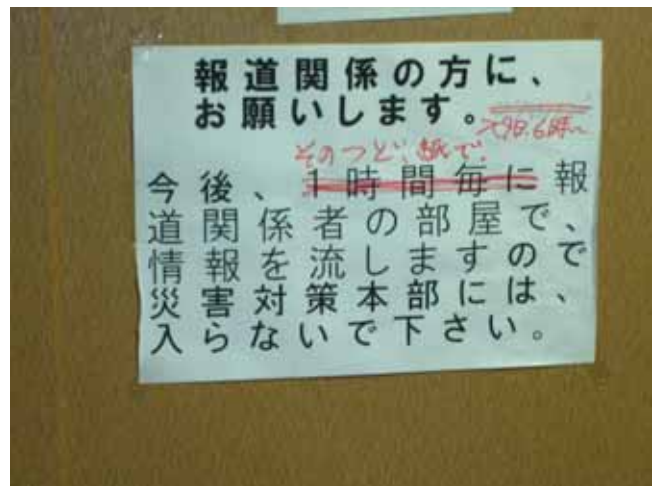 報道関係の方に、
お願いします。
29日.6時〜
そのつど、紙で、
今後、1時間毎に報
道関係者の部屋で、
情報を流しますので
災害対策本部には、
入らないで下さい。